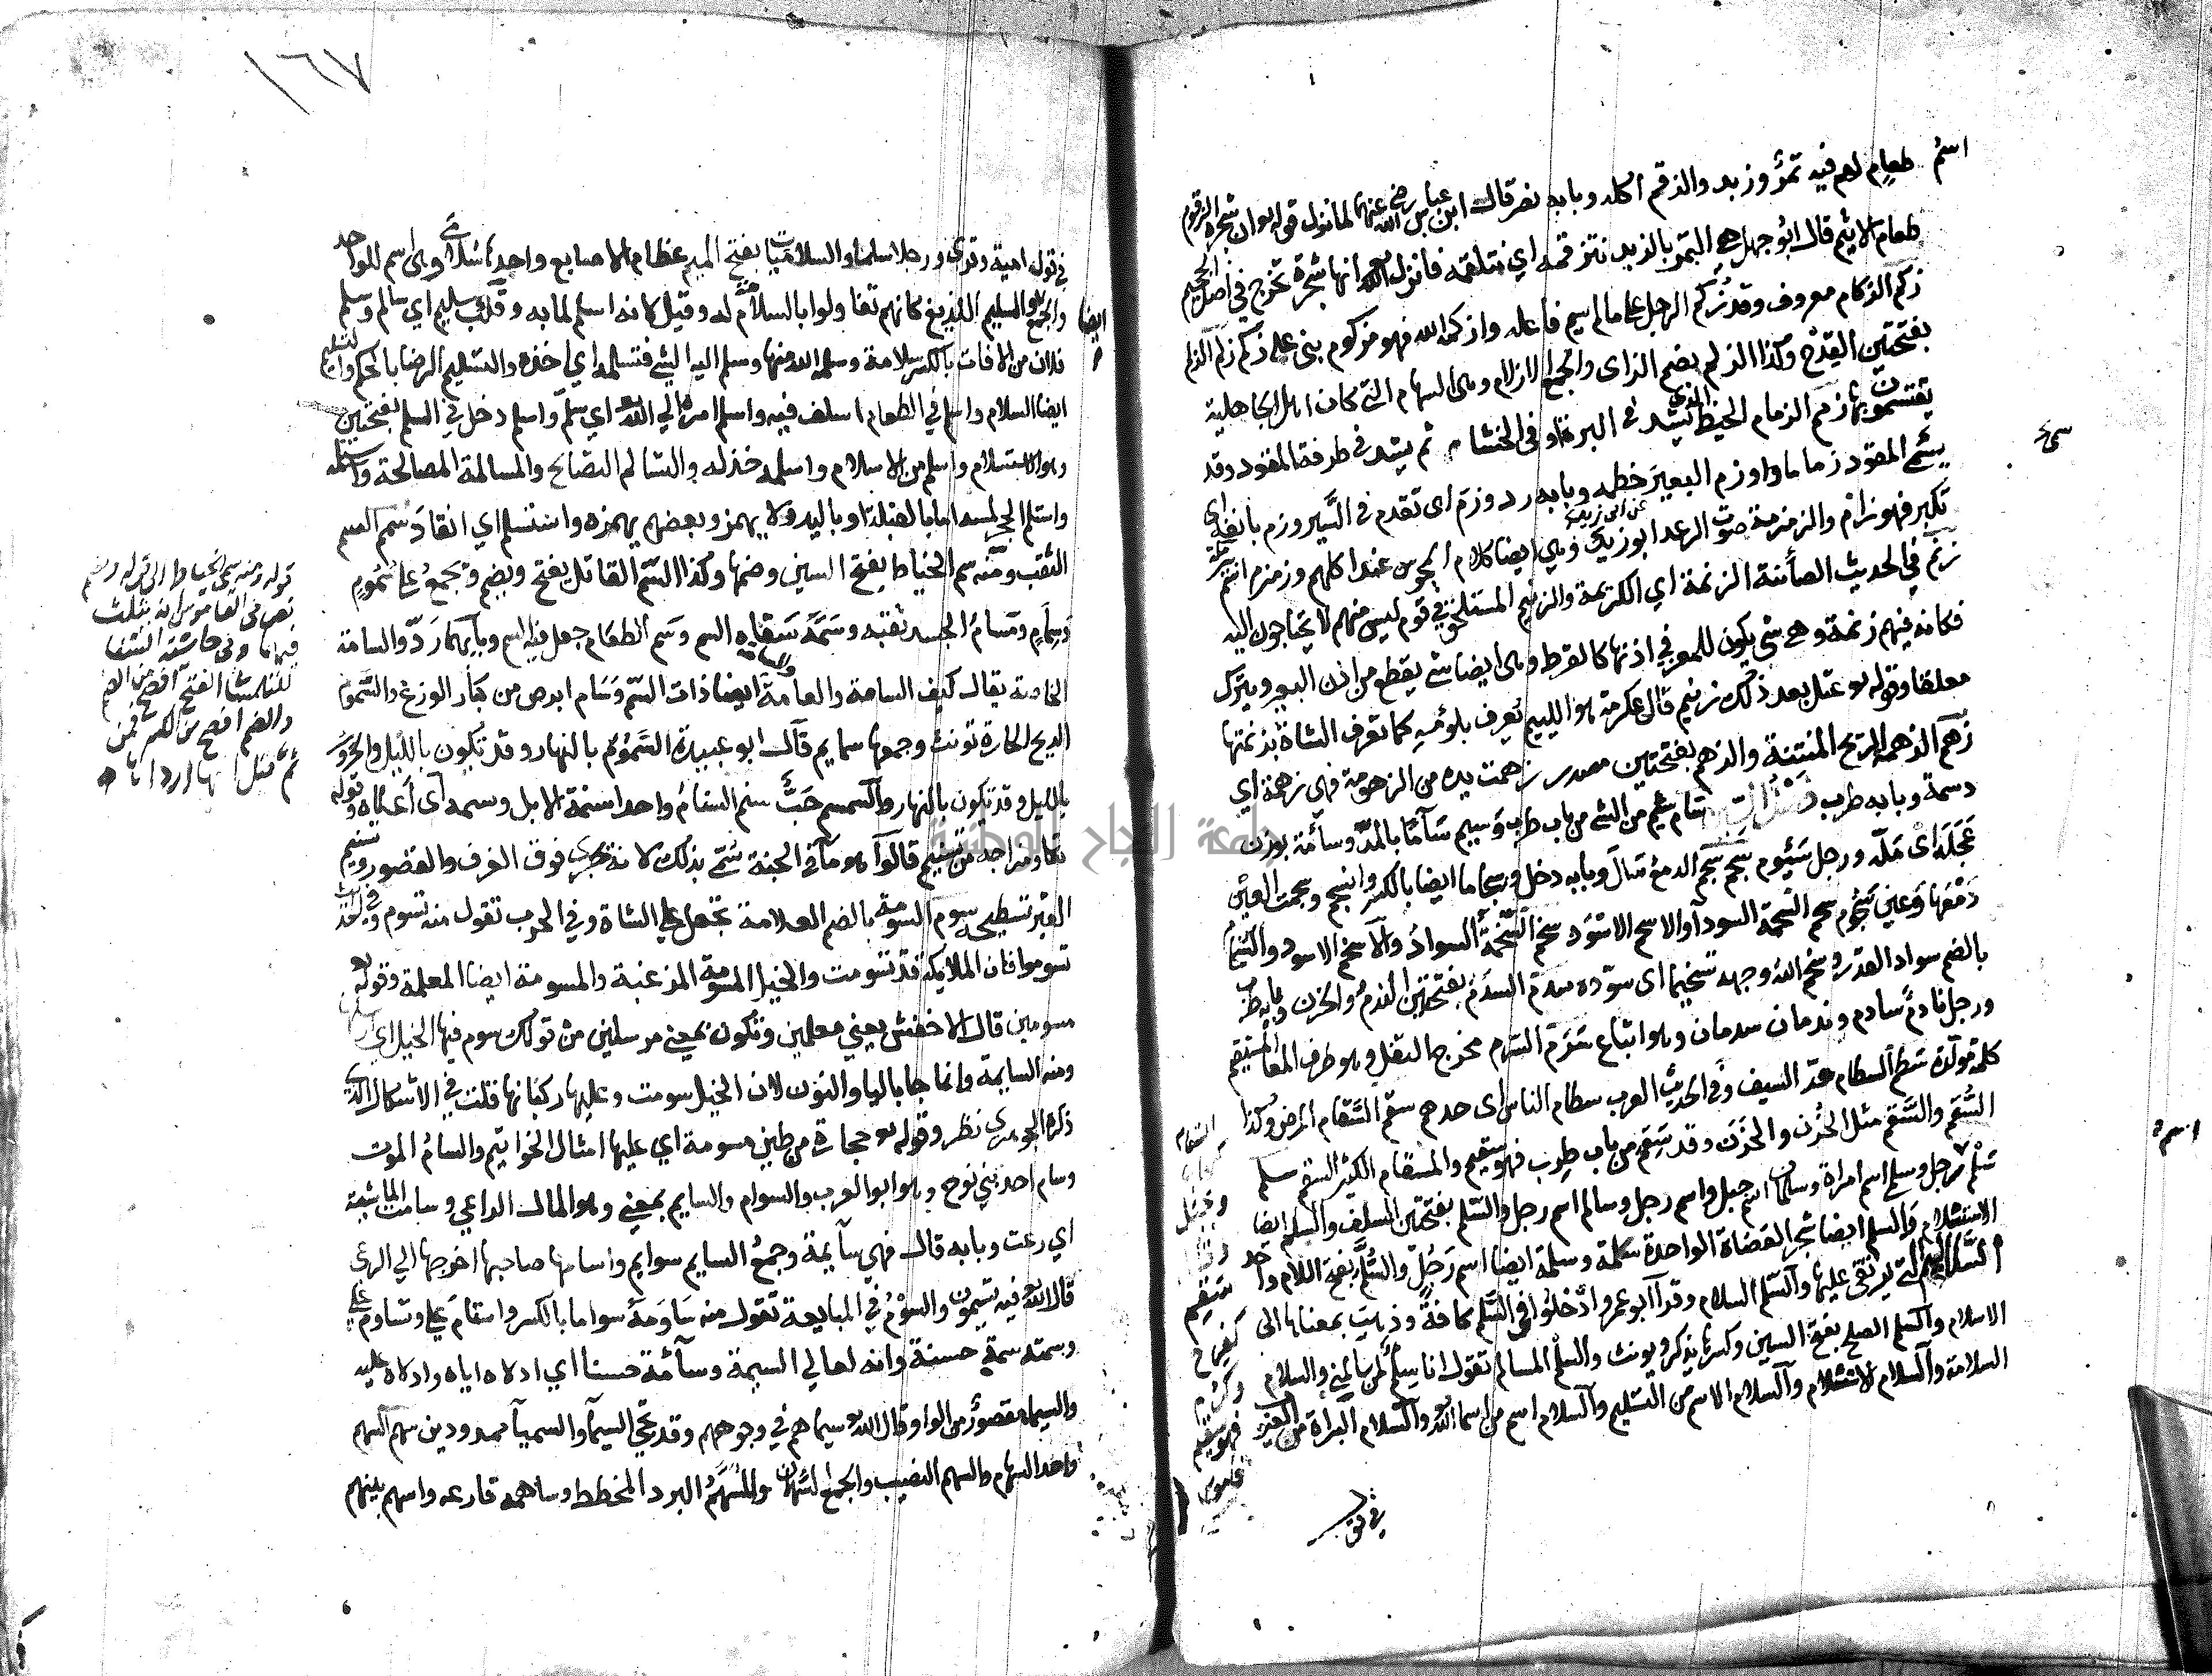 اسم طعام لهم فيه تمر وزبد والزقم اكله وبابه نصر قال ابن عباس رضي الله عنهما لما نزل قوله ان شجرة الزقوم
طعام الاثيم قال ابو جهل هي التمر بالزبد نتزقمه اي نتلقمه فانزل الله انها شجرة تخرج في اصل الجحيم
زكم الزكام معروف وقد زكم الرجل على ما لم يسم فاعله وازكمه الله فهو مزكوم بني على زكم زلم الزلم
بفتحتين القدح وكذا الزلم بضم الزاى والجمع الازلام وهى السهام التى كان اهل الجاهلية
يقتسمون بها زمم الزمام الخيط الذى يشد فى البرة او فى الخشاش ثم يشد فى طرفه المقود وقد
يسمى المقود زماما وزم البعير خطمه وبابه رد وزم اى تقدم فى السير وزم بانفه اى
تكبر فهو زام والزمزمة صوت الرعد عن ابى زيد وهي ايضا كلام المجوس عند اكلهم وزمزم اسم بئر مكة
زنم في الحديث الضأنة الزنمة اي الكريمة والزنيم المستلحق في قوم ليس منهم لا يحتاجون اليه
فكانه فيهم زنمة وهي شئ يكون للمعز في اذنها كالقرط وهى ايضا شئ يقطع من اذن البعير ويترك
معلقا وقوله تعالى عتل بعد ذلك زنيم قال عكرمة هو اللئيم يعرف بلؤمه كما تعرف الشاة بزنمتها
زهم الزهمة الريح المنتنة والزهم بفتحتين مصدر زهمت يده من الزهومة فهى زهمة اي
دسمة وبابه طرب سئم من الشئ من باب طرب وسئيم سآما بالمد وسأمة بوزن
عجلة اى مله ورجل سئوم سجم سجم الدمع سال وبابه دخل وسجاما ايضا بالكسر وانسجم وسجمت العين
دمعها وعين سجوم سحم السحمة السوداء والاسحم الاسود سخم السخمة السواد والاسخم الاسود والسخام
بالضم سواد القدر وسخم الله وجهه تسخيما اى سوده سدم السدم بفتحتين الندم والحزن وبابه طرب
ورجل نادم سادم وندمان سدمان وهو اتباع سرم السرم مخرج الثفل وهو طرف المعا المستقيم
كلمة مولدة سطم السطام حد السيف وفى الحديث العرب سطام الناس اى حدهم سقم السقام المرض وكذا
السقم والسقم مثل الحزن والحزن وقد سقم من باب طرب فهو سقيم والمسقام الكثير السقم سلم
سلم رجل وسلمى اسم امراة وسلمان اسم جبل واسم رجل وسالم اسم رجل والسلم بفتحتين السلف والسلم ايضا
الاستسلام والسلم ايضا شجر العضاة الواحدة سلمة وسلمة ايضا اسم رجل والسلم بفتح اللام واحد
السلاليم التى يرتقى عليها والسلم السلام وقرا ابو عمرو ادخلوا فى السلم كافة وذهب بمعناها الى
الاسلام والسلم الصلح بفتح السين وكسرها يذكر ويؤنث والسلم المسالم تقول انا سلم لمن سالمنى والسلام
السلامة والسلام الاستسلام والسلام الاسم من التسليم والسلام اسم من اسماء الله والسلام البراة من العيوب
في قول
سمى
اسم
١٦٧
في قول امية وقرئ ورجلا سلما والسلاميات بفتح الميم عظام الاصابع واحدها سلامى وهى اسم للواحد
والجمع والسليم اللديغ كانهم تفاولوا بالسلامة له وقيل لانه اسلم لما به وقلب سليم اي سالم وسلم
فلان من الافات بالكسر سلامة وسلمه الله منها وسلم اليه الشئ فتسلمه اي اخذه والتسليم الرضا بالحكم والتسليم
ايضا السلام واسلم في الطعام اسلف فيه واسلم امره الي الله اي سلم واسلم دخل في السلم بفتحتين
وهو الاستسلام واسلم من الاسلام واسلمه خذله والتسالم التصالح والمسالمة المصالحة واستلم
واستلم الحجر لمسه اما بالقبلة او باليد ولا يهمز وبعضهم يهمزه واستسلم اي انقاد سمم السم
الثقب ومنه سم الخياط بفتح السين وضمها وكذا السم القاتل بفتح ويضم ويجمع على سموم
وسمام ومسام الجسد ثقبه وسمه سقاه السم وسم الطعام جعل فيه السم وبابهما رد والسامة
الخاصة يقال كيف السامة والعامة والسامة ايضا ذات السم وسام ابرص من كبار الوزغ والسموم
الريح الحارة تونث وجمعها سمايم قال ابو عبيدة السموم بالنهار وقد تكون بالليل والحرور
بالليل وقد تكون بالنهار والسمسم حب سنم السنام واحد اسنمة الابل وسنمه اى اعلاه وقوله
تعا ومزاجه من تسنيم قالوا هو ما فى الجنة سمى بذلك لانه يجرى فوق الغرف والقصور وتسنيم
القبر تسطيحه سوم السومة بالضم العلامة تجعل على الشاة وفي الحرب تقول منه تسوم وفى الحديث
تسوموا فان الملايكة قد تسومت والخيل المسومة المرعية والمسومة ايضا المعلمة وقوله تعا
مسومين قال الاخفش يعني معلمين وتكون بمعنى مرسلين من قولك سوم فيها الخيل اى ارسلها
ومنه السايمة وانما جا باليا والنون لان الخيل سومت وعليها ركبانها قلت في الاشكال الذى
ذكره الجوهرى نظر وقوله تعا حجارة من طين مسومة اي عليها امثال الخواتيم والسام الموت
وسام احد بني نوح وهو ابو العرب والسوام والسايم بمعنى وهو المال الراعي وسامت الماشية
اي رعت وبابه قال فهي سايمة وجمع السايم سوايم واسامها صاحبها اخرجها الي الرعى
قال الله فيه تسيمون والسوم في المبايعة تقول منه ساومه سواما بالكسر واستام علي وتساوم علي
وسمته سمة حسنة وانه لغالي السيمة
والسيما مقصور من الواو قال الله سيماهم في وجوههم وقد تجئ السيماء والسمياء ممدودين سهم السهم
واحد السهام والسهم النصيب والجمع السهمان والمسهم البرد المخطط وساهمه قارعه واسهم بينهم
ايضا
قوله ومنه سم الخياط الى قوله ويضم
نص فى القاموس انه يثلث
فيهما وفى حاشية الشفا
للتلمسانى الفتح افصح من الضم
والضم افصح من الكسر